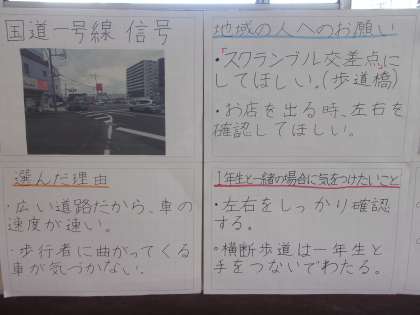 国道一号線 信号
地域の人へのお願い
・「スクランブル交差点」に
してほしい。(歩道橋)
・お店を出る時、左右を
確認してほしい。
選んだ理由
・広い道路だから、車の
速度が速い。
・歩行者に曲がってくる
車が気づかない。
1年生と一緒の場合に気をつけたいこと
・左右をしっかり確認
する。
・横断歩道は一年生と
手をつないでわたる。